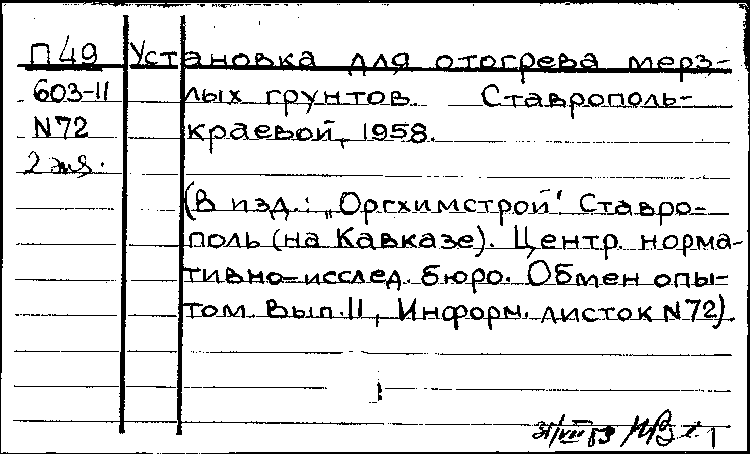 П49 Установка для отогрева мерз-
603-11 лых грунтов. Ставрополь-
N72 краевой, 1958.
2 экз.
(В изд.: „Оргхимстрой" Ставро-
поль (на Кавказе). Центр. норма-
тивно-исслед. бюро. Обмен опы-
том. Вып. 11, Информ. листок N72).